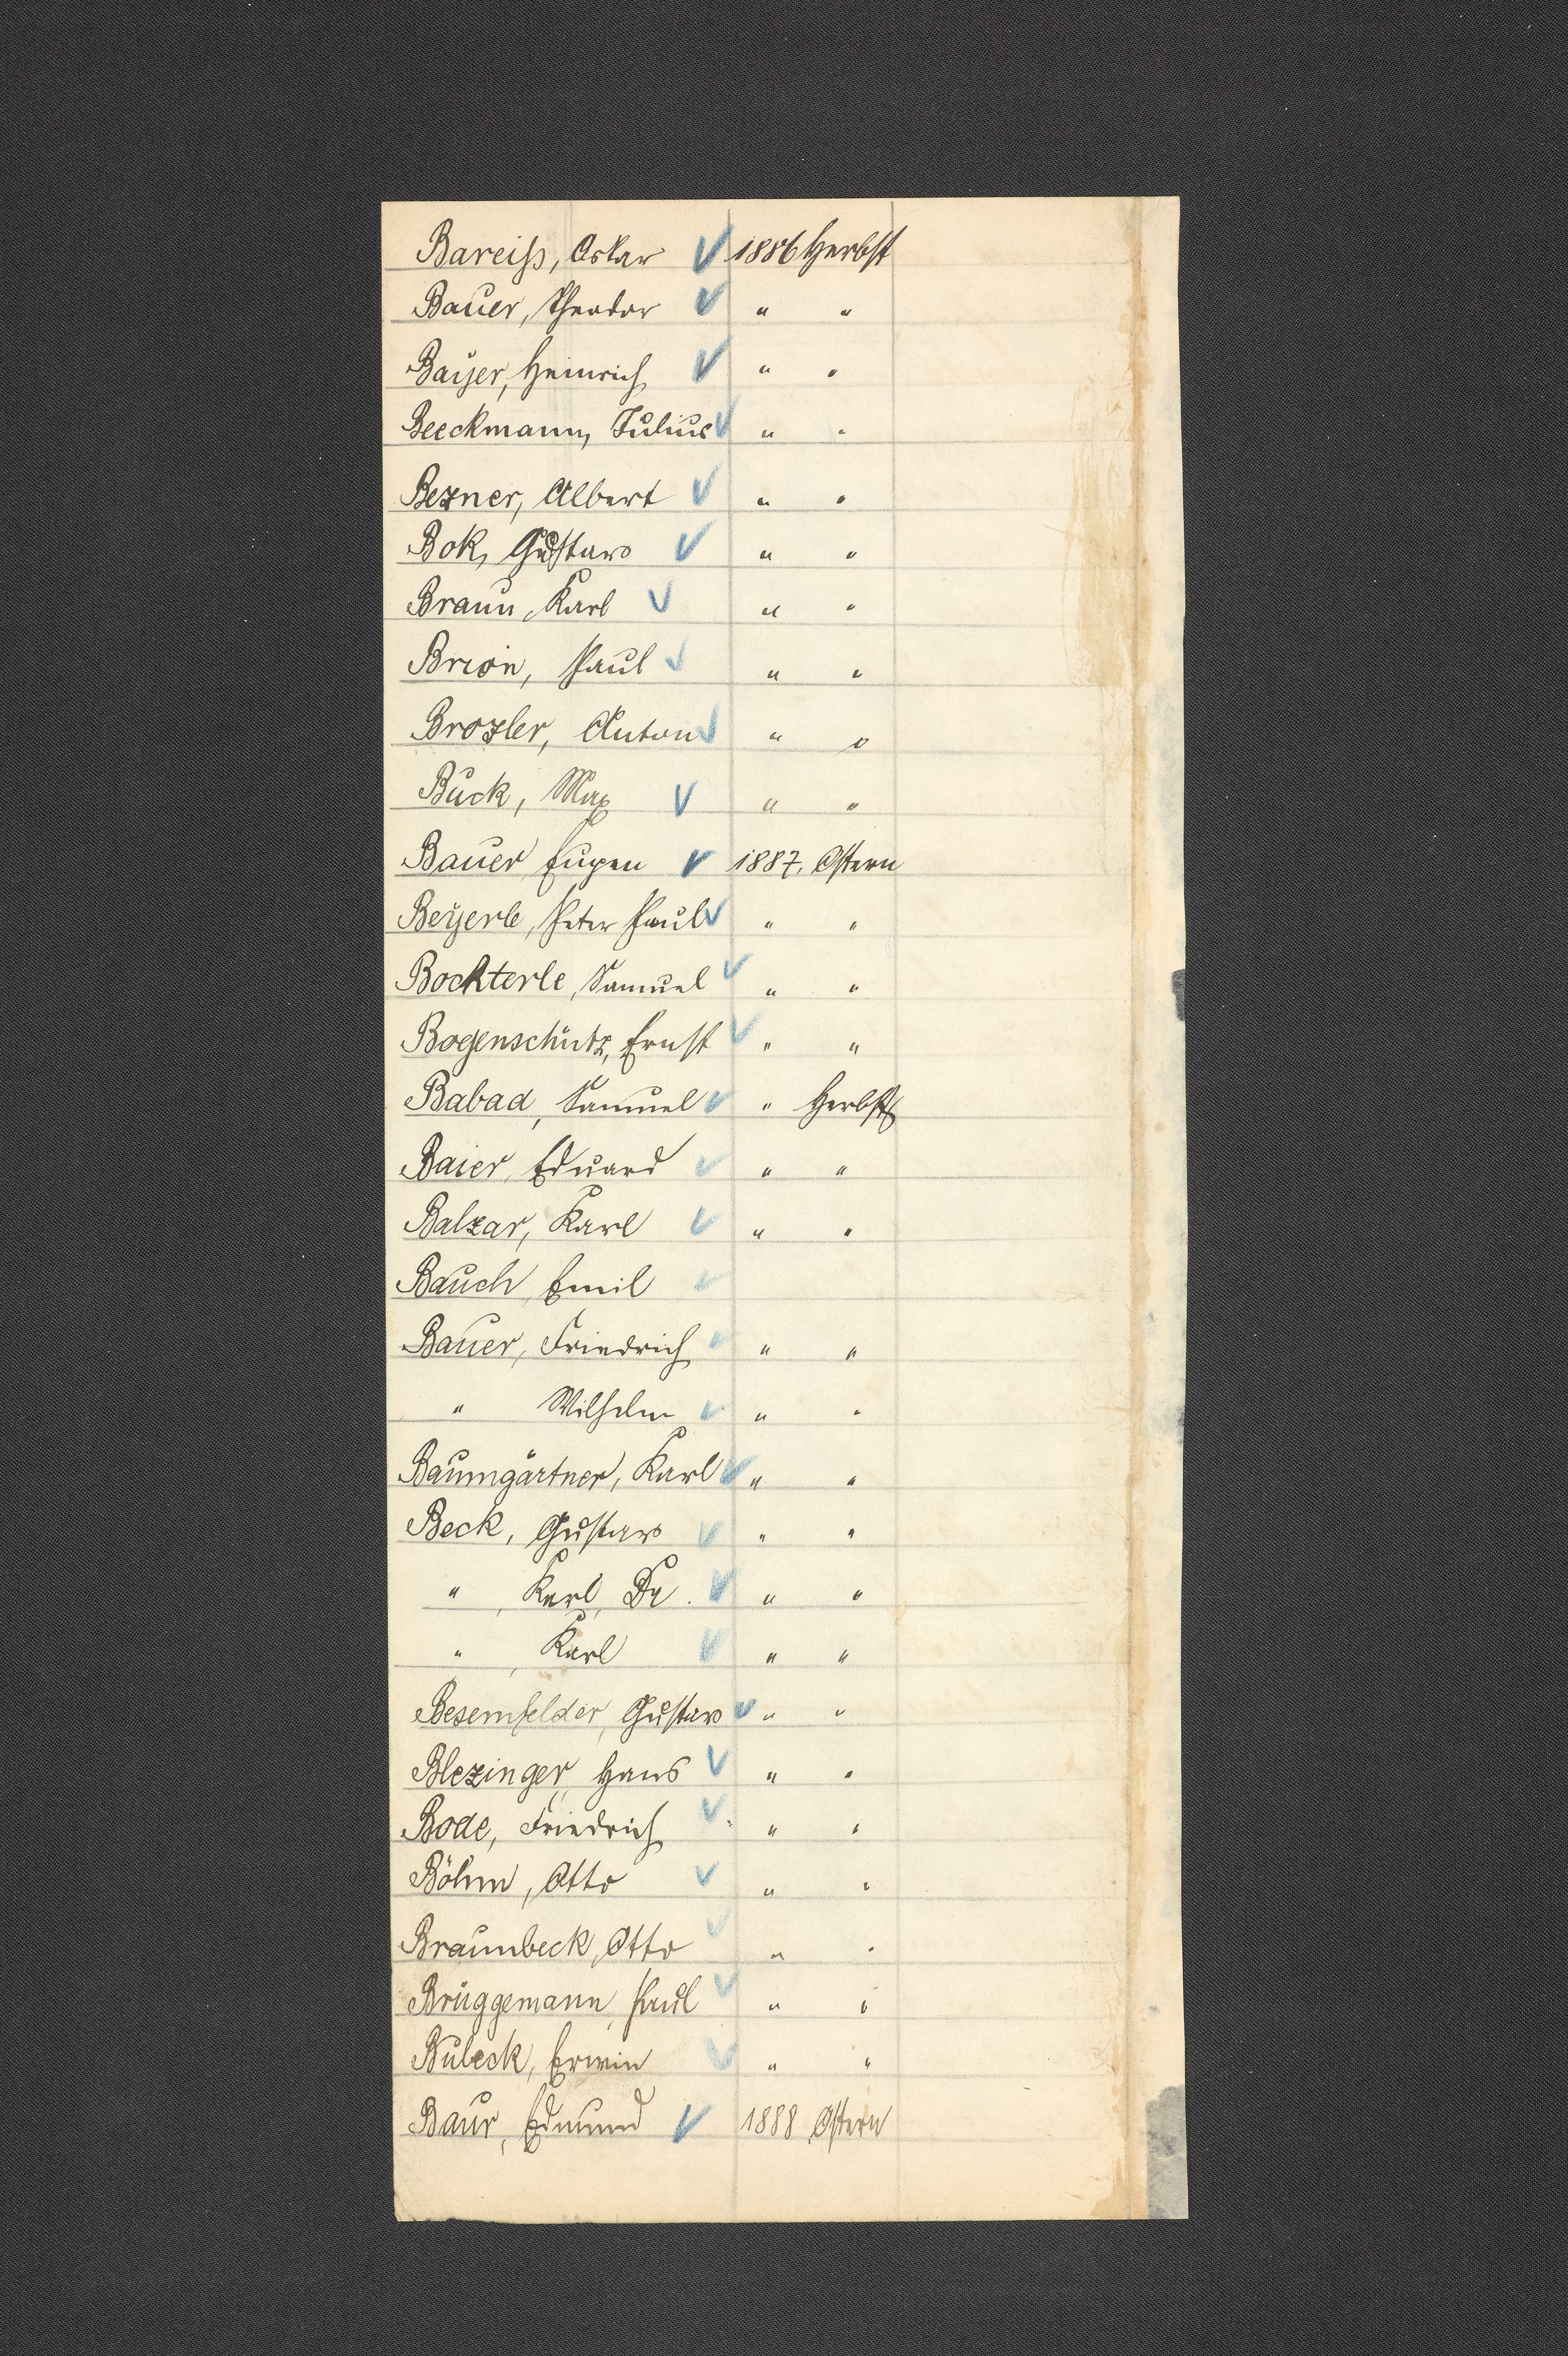 Bareiss, Oskar ✓ 1886 Herbst
Bauer, Theodor ✓ " "
Bayer, Heinrich ✓ " "
Beeckmann, Julius ✓ " "
Bezner, Albert ✓ " "
Bok, Gustav ✓ " "
Braun, Karl ✓ " "
Brion, Paul ✓ " "
Brozler, Anton ✓ " "
Buck, Max ✓ " "
Bauer Eugen ✓ 1887. Ostern
Beyerle, Peter Paul ✓ " "
Bochterle, Samuel ✓ " "
Bogenschütz, Ernst ✓ " "
Babad, Samuel ✓ " Herbst
Baier, Eduard ✓ " "
Balzar, Karl ✓ " "
Bauch, Emil ✓
Bauer, Friedrich ✓ " "
" Wilhelm ✓ " "
Baumgärtner, Karl ✓ " "
Beck, Gustav ✓ " "
" , Karl, Dr. ✓ " "
" , Karl ✓ " "
Besemfelder, Gustav ✓ " "
Blezinger, Hans ✓ " "
Bode, Friedrich ✓ " "
Böhm, Otto ✓ " "
Braunbeck, Otto ✓ " "
Brüggemann, Paul ✓ " "
Bubeck, Erwin ✓ " "
Baur, Edmund ✓ 1888 Ostern